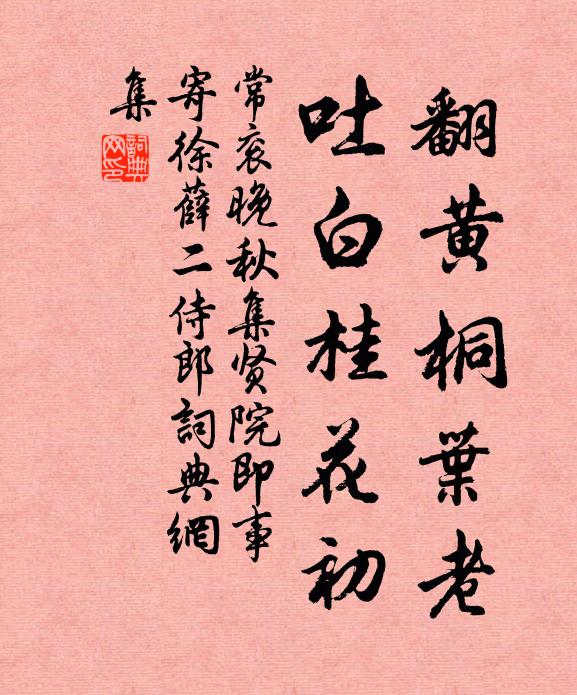 翻黄桐葉老
吐白桂花初
常衮晚秋集贤院即事
寄徐薛二侍郎詞典網
集
詞典
网印